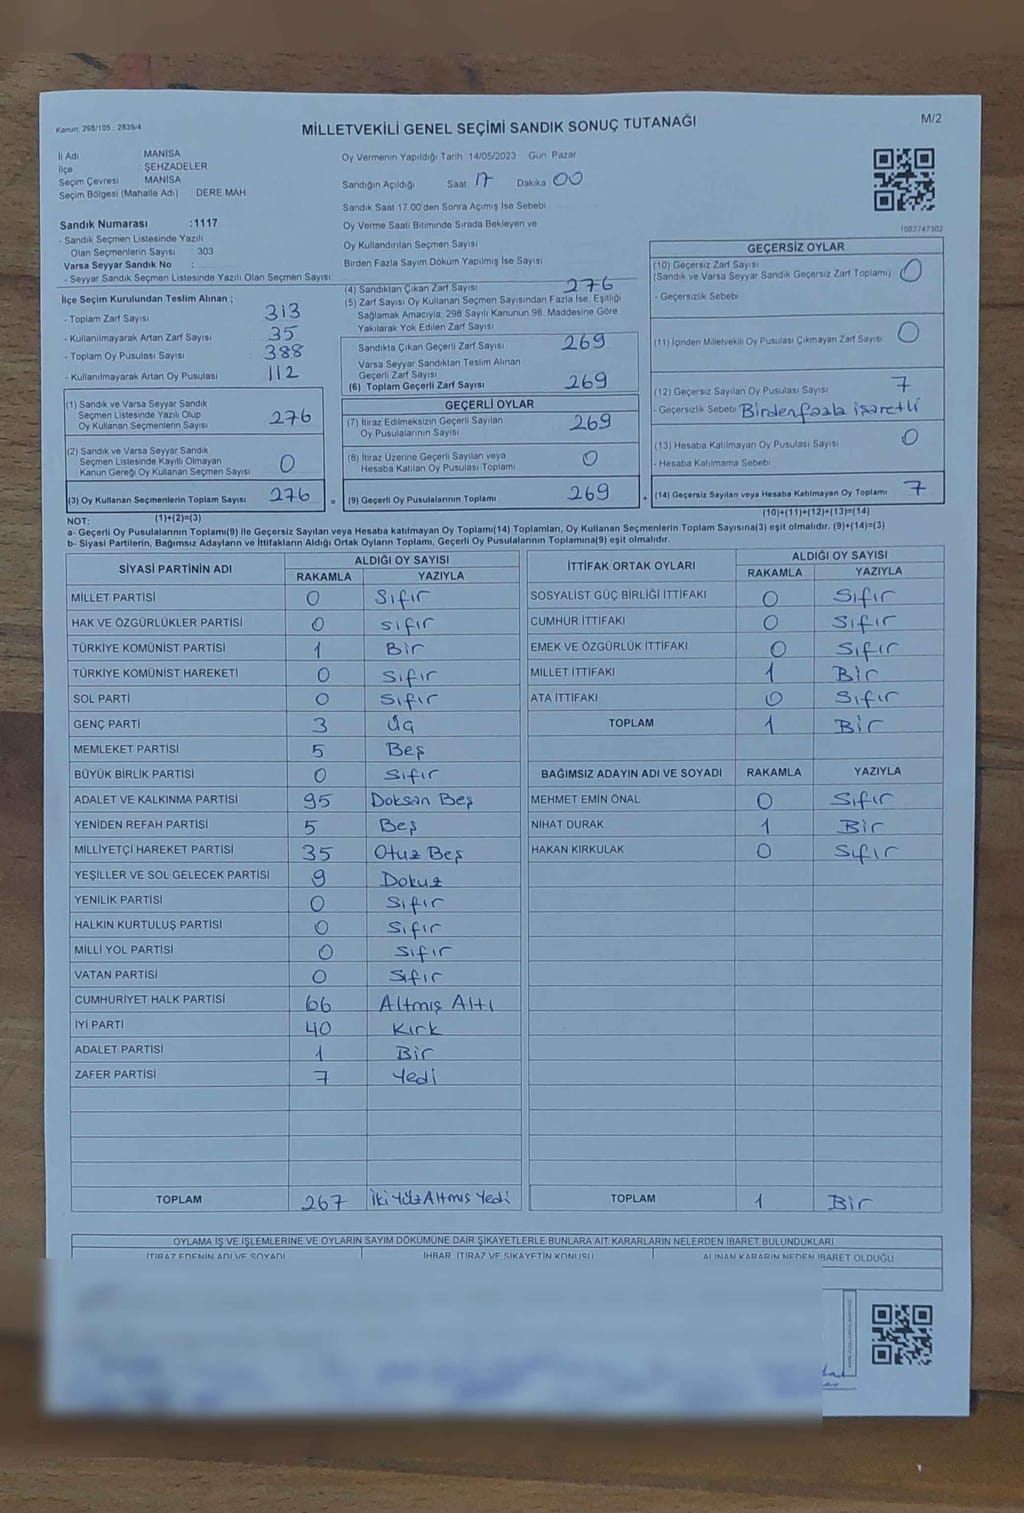 Kanun: 298/105 ; 2839/4
MİLLETVEKİLİ GENEL SEÇİMİ SANDIK SONUÇ TUTANAĞI
M/2
İl Adı MANİSA
İlçe ŞEHZADELER
Seçim Çevresi MANİSA
Seçim Bölgesi (Mahalle Adı) DERE MAH.
Oy Vermenin Yapıldığı Tarih 14/05/2023 Gün Pazar
Sandığın Açıldığı Saat 17 Dakika 00
Sandık Saat 17.00'den Sonra Açımış İse Sebebi
Oy Verme Saati Bitiminde Sırada Bekleyen ve
Oy Kullandırılan Seçmen Sayısı
Birden Fazla Sayım Döküm Yapılmış İse Sayısı
1083747302
Sandık Numarası :1117
- Sandık Seçmen Listesinde Yazılı
Olan Seçmenlerin Sayısı : 303
Varsa Seyyar Sandık No :
- Seyyar Sandık Seçmen Listesinde Yazılı Olan Seçmen Sayısı
İlçe Seçim Kurulundan Teslim Alınan ;
- Toplam Zarf Sayısı 313
- Kullanılmayarak Artan Zarf Sayısı 35
- Toplam Oy Pusulası Sayısı 388
- Kullanılmayarak Artan Oy Pusulası 112
(1) Sandık ve Varsa Seyyar Sandık
Seçmen Listesinde Yazılı Olup
Oy Kullanan Seçmenlerin Sayısı 276
(2) Sandık ve Varsa Seyyar Sandık
Seçmen Listesinde Kayıtlı Olmayan
Kanun Gereği Oy Kullanan Seçmen Sayısı 0
(3) Oy Kullanan Seçmenlerin Toplam Sayısı 276 =
(1)+(2)=(3)
(4) Sandıktan Çıkan Zarf Sayısı 276
(5) Zarf Sayısı Oy Kullanan Seçmen Sayısından Fazla İse, Eşitliği
Sağlamak Amacıyla, 298 Sayılı Kanunun 98. Maddesine Göre
Yakılarak Yok Edilen Zarf Sayısı
Sandıkta Çıkan Geçerli Zarf Sayısı 269
Varsa Seyyar Sandıktan Teslim Alınan
Geçerli Zarf Sayısı
(6) Toplam Geçerli Zarf Sayısı 269
GEÇERLİ OYLAR
(7) İtiraz Edilmeksizin Geçerli Sayılan
Oy Pusulalarının Sayısı 269
(8) İtiraz Üzerine Geçerli Sayılan veya
Hesaba Katılan Oy Pusulası Toplamı 0
(9) Geçerli Oy Pusulalarının Toplamı 269 +
GEÇERSİZ OYLAR
(10) Geçersiz Zarf Sayısı
(Sandık ve Varsa Seyyar Sandık Geçersiz Zarf Toplamı) 0
- Geçersizlik Sebebi
(11) İçinden Milletvekili Oy Pusulası Çıkmayan Zarf Sayısı 0
(12) Geçersiz Sayılan Oy Pusulası Sayısı 7
- Geçersizlik Sebebi Birden fazla işaretli
(13) Hesaba Katılmayan Oy Pusulası Sayısı 0
- Hesaba Katılmama Sebebi
(14) Geçersiz Sayılan veya Hesaba Katılmayan Oy Toplamı 7
(10)+(11)+(12)+(13)=(14)
NOT:
a- Geçerli Oy Pusulalarının Toplamı(9) ile Geçersiz Sayılan veya Hesaba katılmayan Oy Toplamı(14) Toplamları, Oy Kullanan Seçmenlerin Toplam Sayısına(3) eşit olmalıdır. (9)+(14)=(3)
b- Siyasi Partilerin, Bağımsız Adayların ve İttifakların Aldığı Ortak Oyların Toplamı, Geçerli Oy Pusulalarının Toplamına(9) eşit olmalıdır.
SİYASİ PARTİNİN ADI ALDIĞI OY SAYISI
RAKAMLA YAZIYLA
MİLLET PARTİSİ 0 Sıfır
HAK VE ÖZGÜRLÜKLER PARTİSİ 0 sıfır
TÜRKİYE KOMÜNİST PARTİSİ 1 Bir
TÜRKİYE KOMÜNİST HAREKETİ 0 Sıfır
SOL PARTİ 0 Sıfır
GENÇ PARTİ 3 Üç
MEMLEKET PARTİSİ 5 Beş
BÜYÜK BİRLİK PARTİSİ 0 Sıfır
ADALET VE KALKINMA PARTİSİ 95 Doksan Beş
YENİDEN REFAH PARTİSİ 5 Beş
MİLLİYETÇİ HAREKET PARTİSİ 35 Otuz Beş
YEŞİLLER VE SOL GELECEK PARTİSİ 9 Dokuz
YENİLİK PARTİSİ 0 Sıfır
HALKIN KURTULUŞ PARTİSİ 0 Sıfır
MİLLİ YOL PARTİSİ 0 Sıfır
VATAN PARTİSİ 0 Sıfır
CUMHURİYET HALK PARTİSİ 66 Altmış Altı
İYİ PARTİ 40 Kırk
ADALET PARTİSİ 1 Bir
ZAFER PARTİSİ 7 Yedi
TOPLAM 267 İki Yüz Altmış Yedi
İTTİFAK ORTAK OYLARI ALDIĞI OY SAYISI
RAKAMLA YAZIYLA
SOSYALİST GÜÇ BİRLİĞİ İTTİFAKI 0 Sıfır
CUMHUR İTTİFAKI 0 Sıfır
EMEK VE ÖZGÜRLÜK İTTİFAKI 0 Sıfır
MİLLET İTTİFAKI 1 Bir
ATA İTTİFAKI 0 Sıfır
TOPLAM 1 Bir
BAĞIMSIZ ADAYIN ADI VE SOYADI RAKAMLA YAZIYLA
MEHMET EMİN ÖNAL 0 Sıfır
NİHAT DURAK 1 Bir
HAKAN KIRKULAK 0 Sıfır
TOPLAM 1 Bir
OYLAMA İŞ VE İŞLEMLERİNE VE OYLARIN SAYIM DÖKÜMÜNE DAİR ŞİKAYETLERLE BUNLARA AİT KARARLARIN NELERDEN İBARET BULUNDUKLARI
İTİRAZ EDENİN ADI VE SOYADI İHBAR, İTİRAZ VE ŞİKAYETİN KONUSU ALINAN KARARIN NEDEN İBARET OLDUĞU